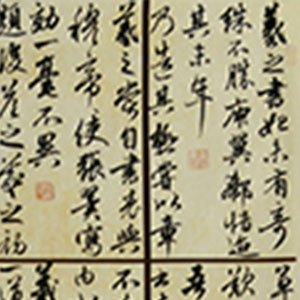 羲之書始未有奇
殊不勝庾翼郗愔迨
其末年
乃造其極嘗以章
羲之常自書表與
穆帝使張翼寫
効一毫不異
題後答之羲之初
草
歎
吾
不
羲